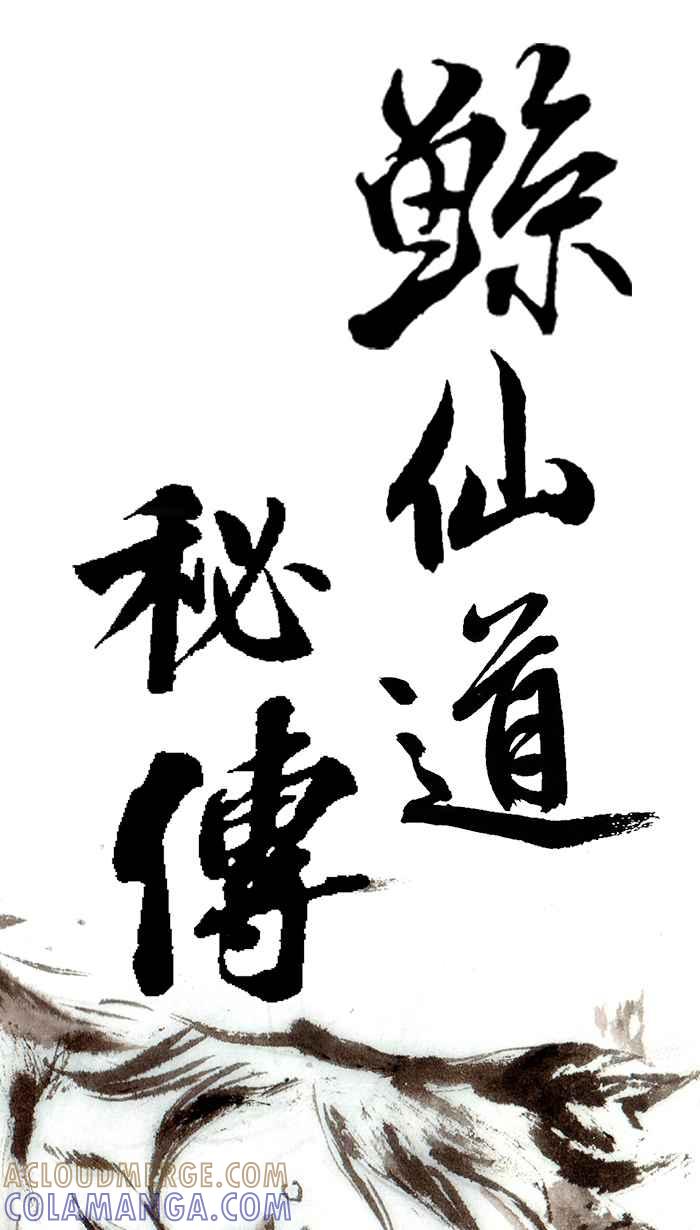 仙道
秘傳
ACLOUDMERGE.COM
COLAMANGA.COM